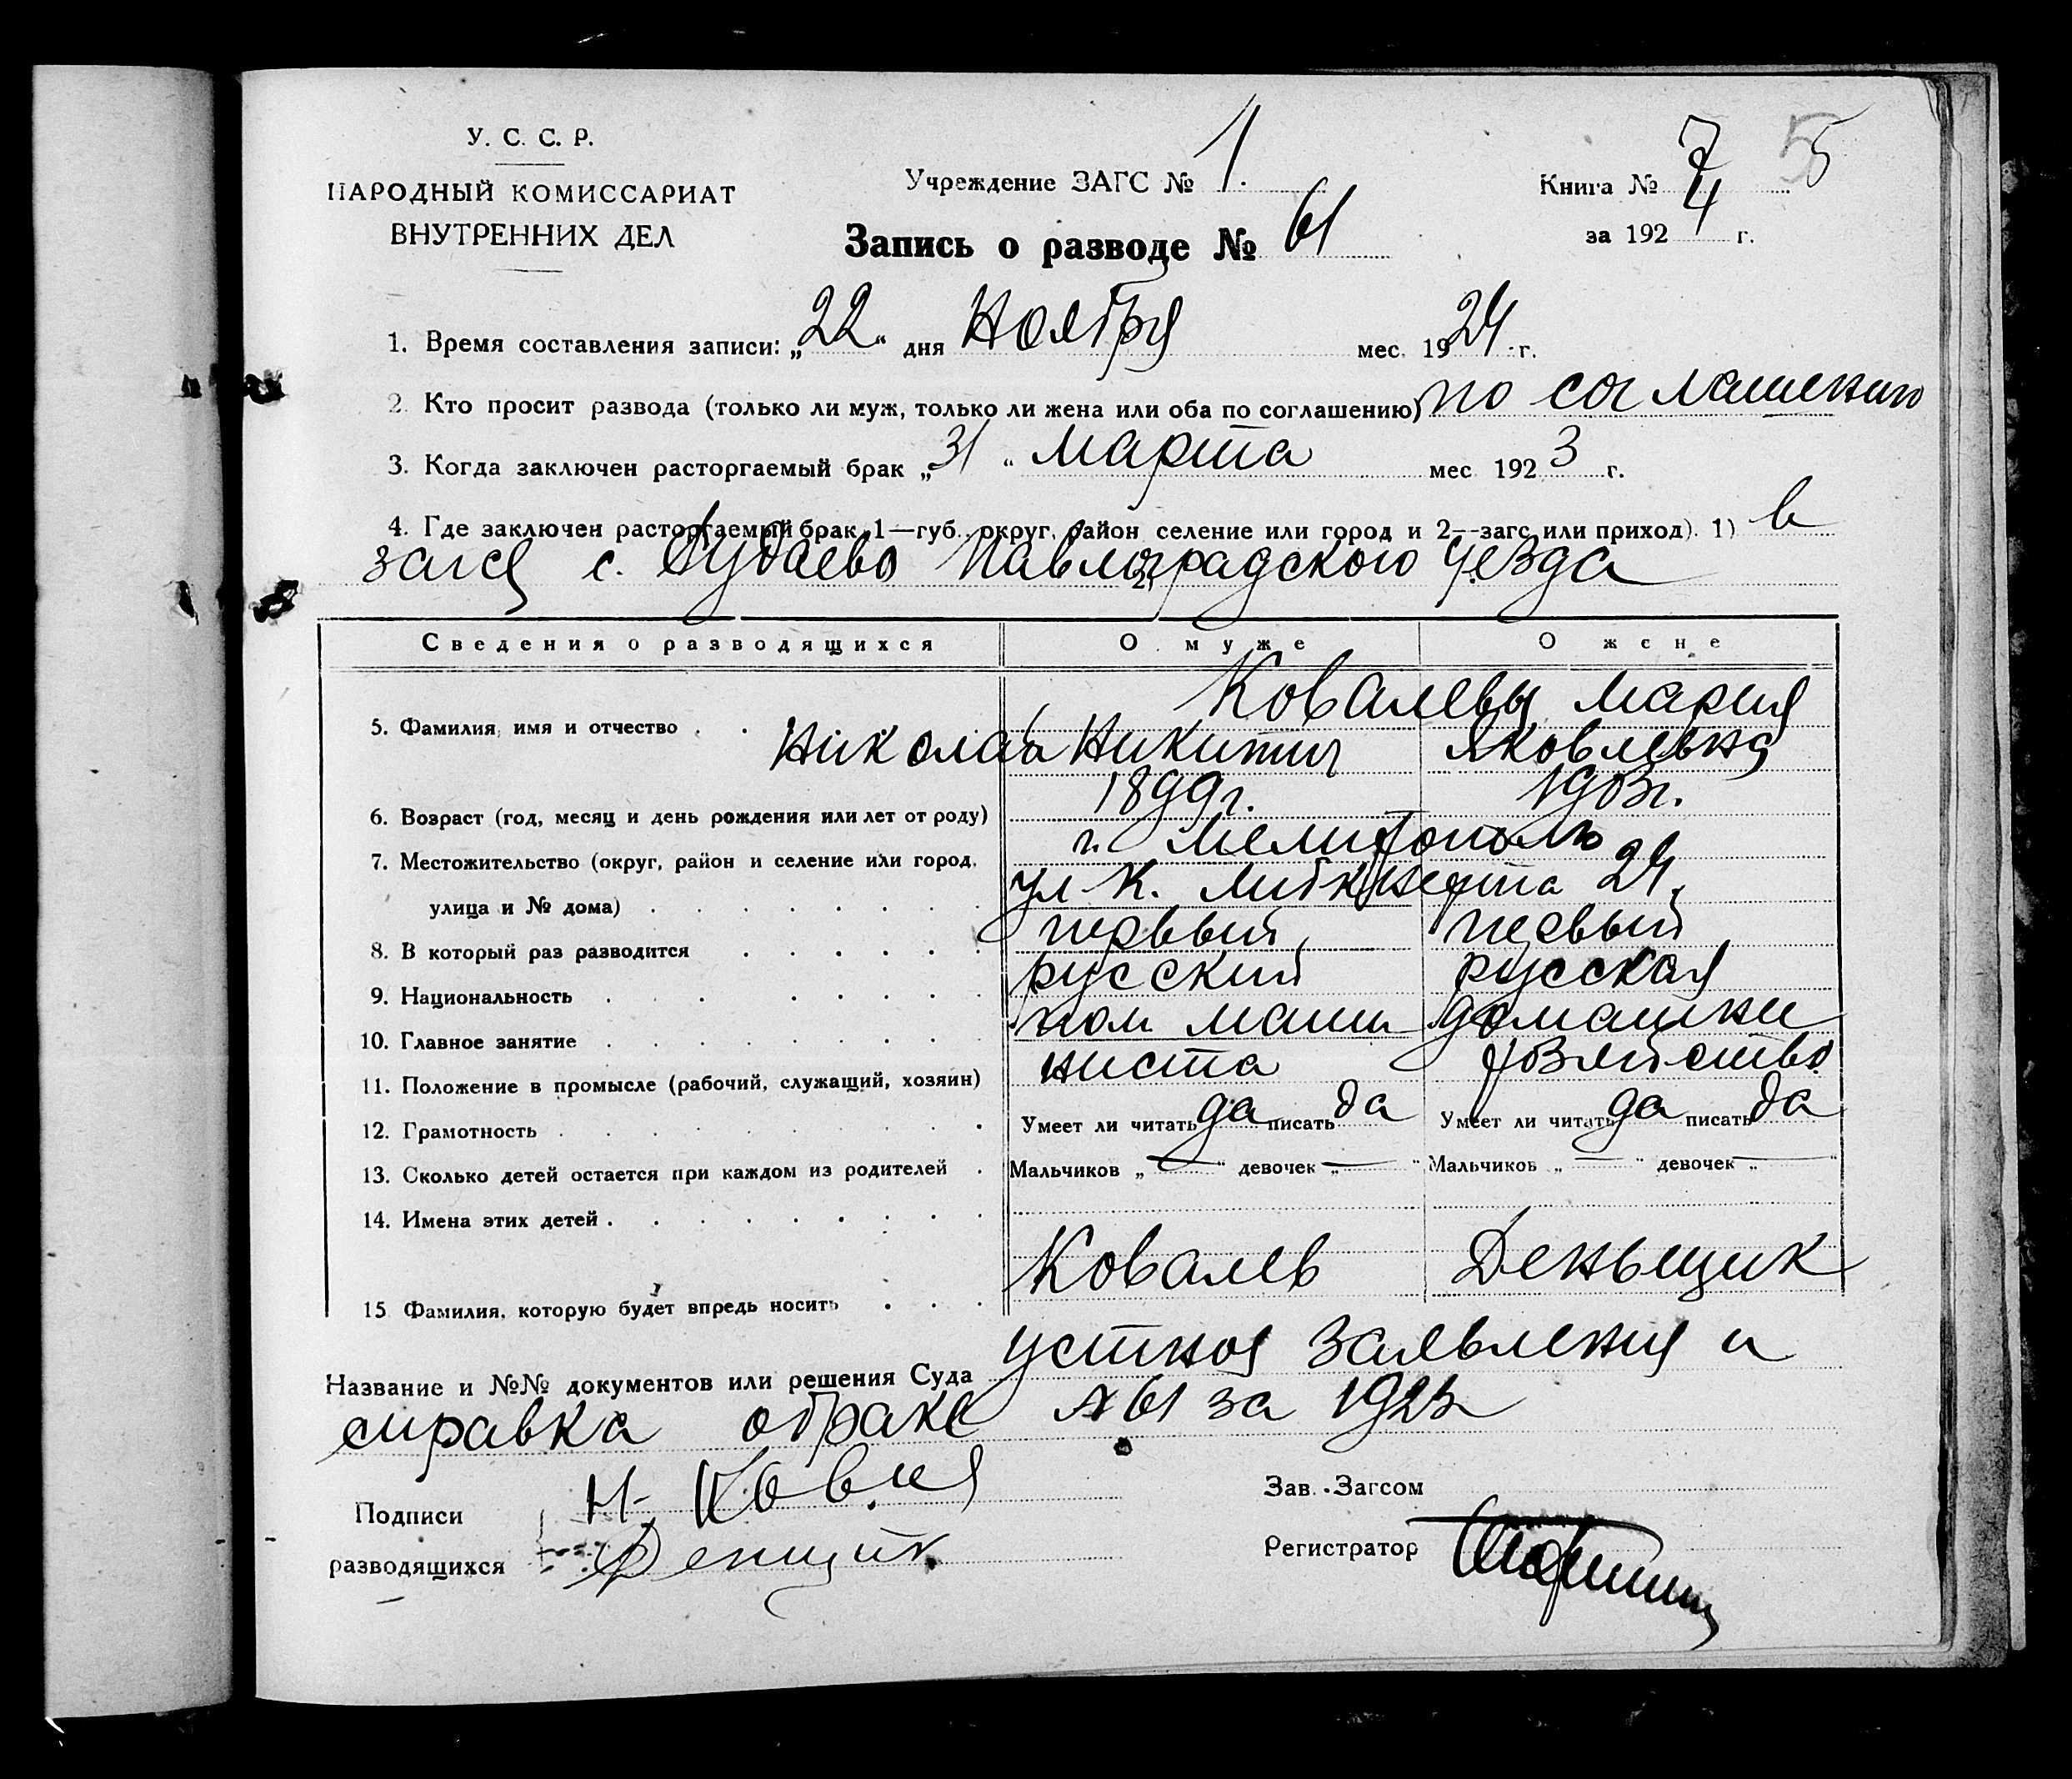 У. С. С. Р.
НАРОДНЫЙ КОМИССАРИАТ
ВНУТРЕННИХ ДЕЛ
Учреждение ЗАГС № 1.
Книга № 7 5 5
за 1924 г.
Запись о разводе № 61
1. Время составления записи: „22“ дня Ноября мес. 1924 г.
2. Кто просит развода (только ли муж, только ли жена или оба по соглашению) по соглашению
3. Когда заключен расторгаемый брак „31“ Марта мес 1923 г.
4. Где заключен расторгаемый брак 1—губ., округ, район селение или город и 2—загс или приход). 1) в
загсе с. Павлоградского уезда
2)
Сведения о разводящихся О муже О жене
Ковалевы Мария
5. Фамилия, имя и отчество Николай Никитич Яковлевна
1899г. 1903г.
6. Возраст (год, месяц и день рождения или лет от роду)
г. Мелитополь
7. Местожительство (округ, район и селение или город,
ул К. Либкнехта 24.
улица и № дома)
первый первый
8. В который раз разводится
русский русская
9. Национальность
пом маши домашнее
10. Главное занятие
ниста хозяйство
11. Положение в промысле (рабочий, служащий, хозяин)
12. Грамотность Умеет ли читать да писать да Умеет ли читать да писать да
13. Сколько детей остается при каждом из родителей Мальчиков „—“ девочек „—“ Мальчиков „—“ девочек „—“
14. Имена этих детей
Ковалев Деньщик
15 Фамилия, которую будет впредь носить
Название и №№ документов или решения Суда устное заявления и
справка о браке № 61 за 1923
Подписи Н.
разводящихся Денщик
Зав. Загсом
Регистратор